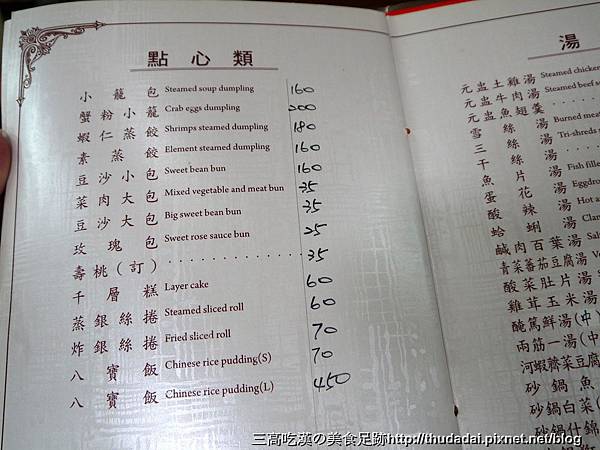 點心類
小籠包 Steamed soup dumpling 160
蟹粉小籠 Crab eggs dumpling 200
蝦仁蒸餃 Shrimps steamed dumpling 180
素蒸餃 Element steamed dumpling 160
豆沙小包 Sweet bean bun 160
菜肉大包 Mixed vegetable and meat bun 35
豆沙大包 Big sweet bean bun 35
玫瑰包 Sweet rose sauce bun 25
壽桃(訂) 35
千層糕 Layer cake 60
蒸銀絲捲 Steamed sliced roll 60
炸銀絲捲 Fried sliced roll 70
八寶飯 Chinese rice pudding(S) 70
八寶飯 Chinese rice pudding(L) 450
湯
元盅土雞湯 Steamed chicken
元盅牛肉湯 Steamed beef
元盅魚翅羹
雪絲湯 Burned meat
三絲湯 Tri-shreds
干絲湯
魚片湯 Fish
蛋花湯
酸辣湯 Hot
蛤蜊湯
鹹肉百葉湯
青菜蕃茄豆腐湯
酸菜肚片湯
雞茸玉米湯
醃篤鮮湯(中)
兩筋一湯(中
河蝦薺菜豆腐
砂鍋魚
砂鍋白菜(
砂鍋什錦
三高吃漢の美食足跡http://thudadai.pixnet.net/blog